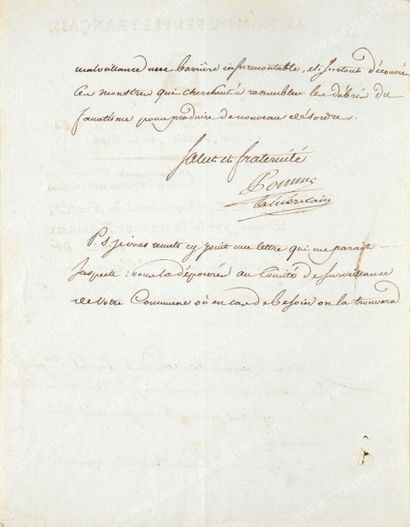 malveillance une barrière insurmontable, et surtout découvré
les monstres qui cherchent à rassembler les débris du
fanatisme pour produire de nouveau désordres.
Salut et fraternité
Pomme
L'américain
P.S. je vous remets cy joint une lettre qui me parait
suspecte : vous la déposerés au Comité de Surveillance
de votre Commune où en cas de besoin on la trouvera